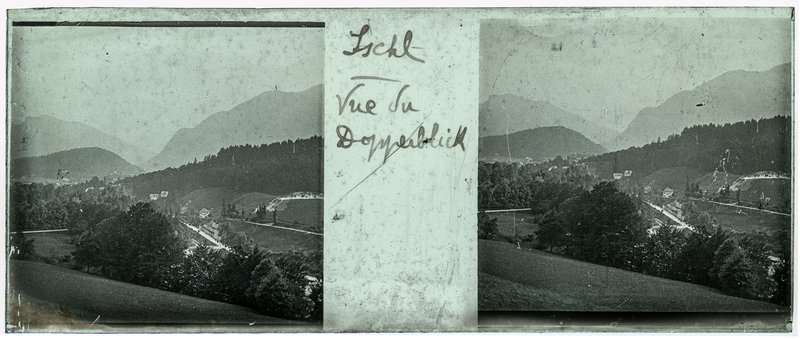 Ischl
Vue du
Dopperblick